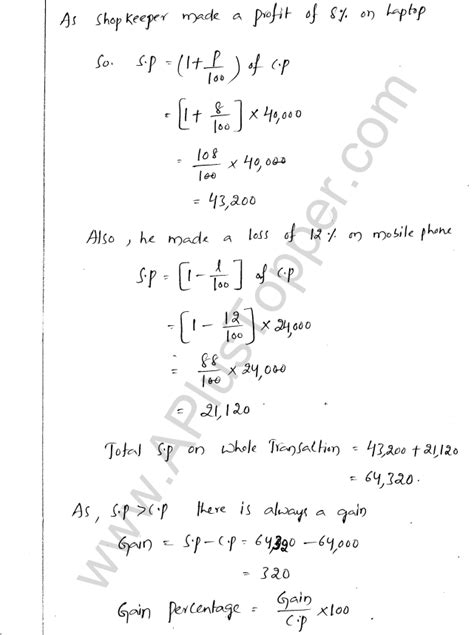 As shopkeeper made a profit of 8% on Laptop
So. S.P = (1+P/100) of C.P
= [1+8/100] × 40,000
= 108/100 × 40,000
= 43,200
Also, he made a loss of 12% on mobile phone
S.P = [1-l/100] of C.P
= [1-12/100] × 24,000
= 88/100 × 24,000
= 21,120
Total S.P on whole Transaction = 43,200+21,120
= 64,320.
As, S.P>C.P there is always a gain
Gain = S.P-C.P = 64,320-64,000
= 320
Gain Percentage = Gain/C.P ×100
www.APlusTopper.com